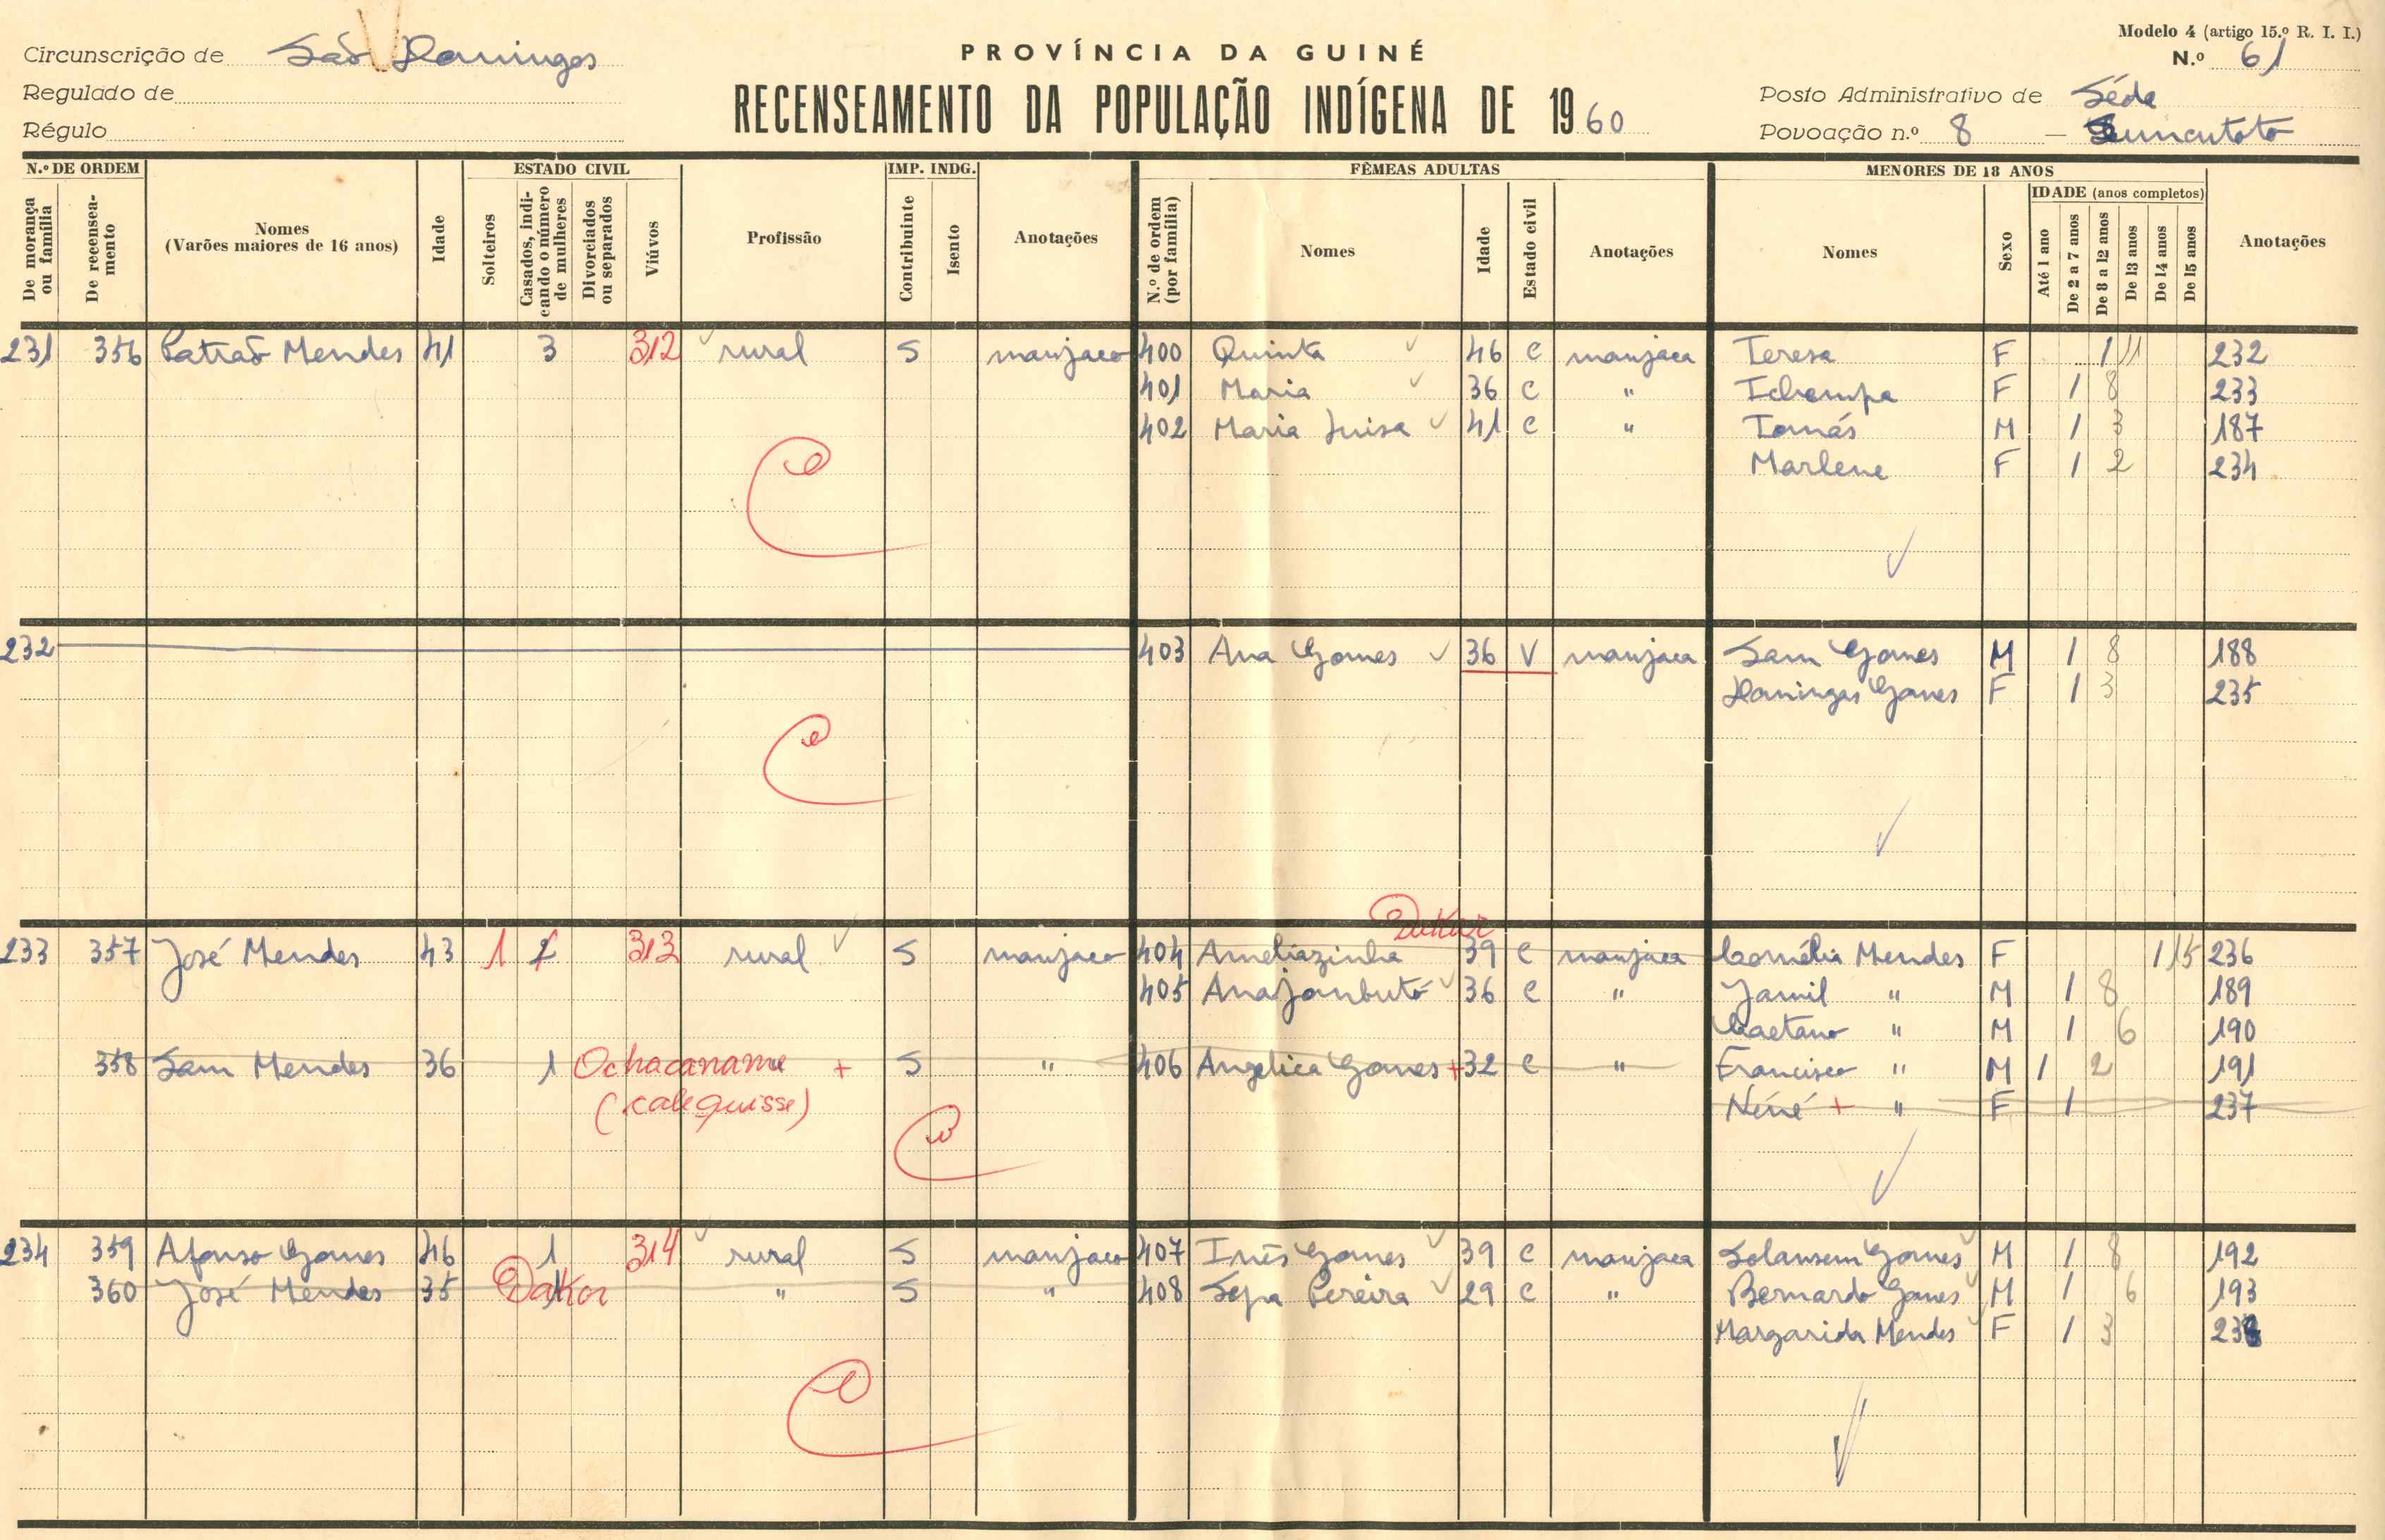 Modelo 4 (artigo 15.º R. I. I.)
Circunscrição de São Domingos
PROVÍNCIA DA GUINÉ
N.º 61
Regulado de
RECENSEAMENTO DA POPULAÇÃO INDÍGENA DE 1960
Posto Administrativo de Séde
Régulo
Povoação n.º 8 —
N.º DE ORDEM ESTADO CIVIL IMP. INDG. FÊMEAS ADULTAS MENORES DE 18 ANOS
De morança ou família De recenseamento Nomes (Varões maiores de 16 anos) Idade Solteiros Casados, indicando o número de mulheres Divorciados ou separados Viúvos Profissão Contribuinte Isento Anotações N.º de ordem (por família) Nomes Idade Estado civil Anotações Nomes Sexo IDADE (anos completos) Até 1 ano De 2 a 7 anos De 8 a 12 anos De 13 anos De 14 anos De 15 anos Anotações
231 356 Patraõ Mendes 41 3 312 rural S manjaco 400 Quinta 46 C manjaca Teresa F 1 11 232
401 Maria 36 C " F 1 8 233
402 Maria Luisa 41 C " Tomás M 1 3 187
Marlene F 1 2 234
C
232 403 Ana Gomes 36 V manjaca Sam Gomes M 1 8 188
Domingas Gomes F 1 3 235
C
Dakar
233 357 José Mendes 43 1 313 rural S manjaco 404 Ameliazinha 39 C manjaca Cornélia Mendes F 1 15 236
405 Ana Jambutó 36 C " Jamil " M 1 8 189
Caetano " M 1 6 190
358 Sam Mendes 36 1 Ochacaname + S " 406 Angelica Gomes + 32 C " Francisco " M 1 2 191
(calequisse) Néné + " F 1 237
C
234 359 Afonso Gomes 46 1 314 rural S manjaco 407 Inês Gomes 39 C manjaca Solansem Gomes M 1 8 192
360 José Mendes 35 Dakar " S " 408 Sepa Pereira 29 C " Bernardo Gomes M 1 6 193
Margarida Mendes F 1 3 238
C